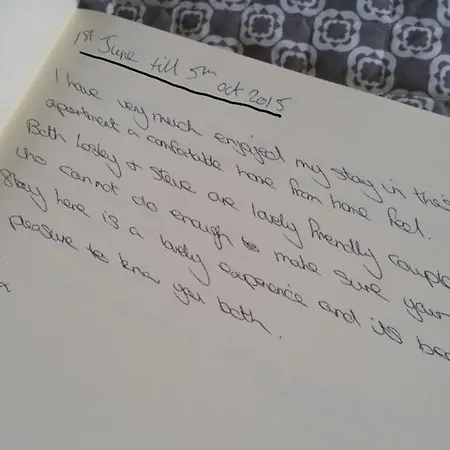 1st June till 5th Oct 2015
I have very much enjoyed my stay in this
apartment a comfortable home from home feel.
Both Lesley + Steve are lovely friendly couple
who cannot do enough to make sure your
stay here is a lovely experience and its been
pleasure to know you both.
x